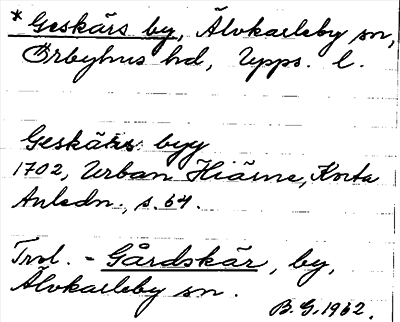 * Geskärs by, Älvkarleby sn,
Örbyhus hd, Upps. l.
Geskärs byy
1702, Urban Hiärne, Korta
Anledn., s. 64.
Trol. - Gårdskär, by,
Älvkarleby sn.
B.G. 1962.